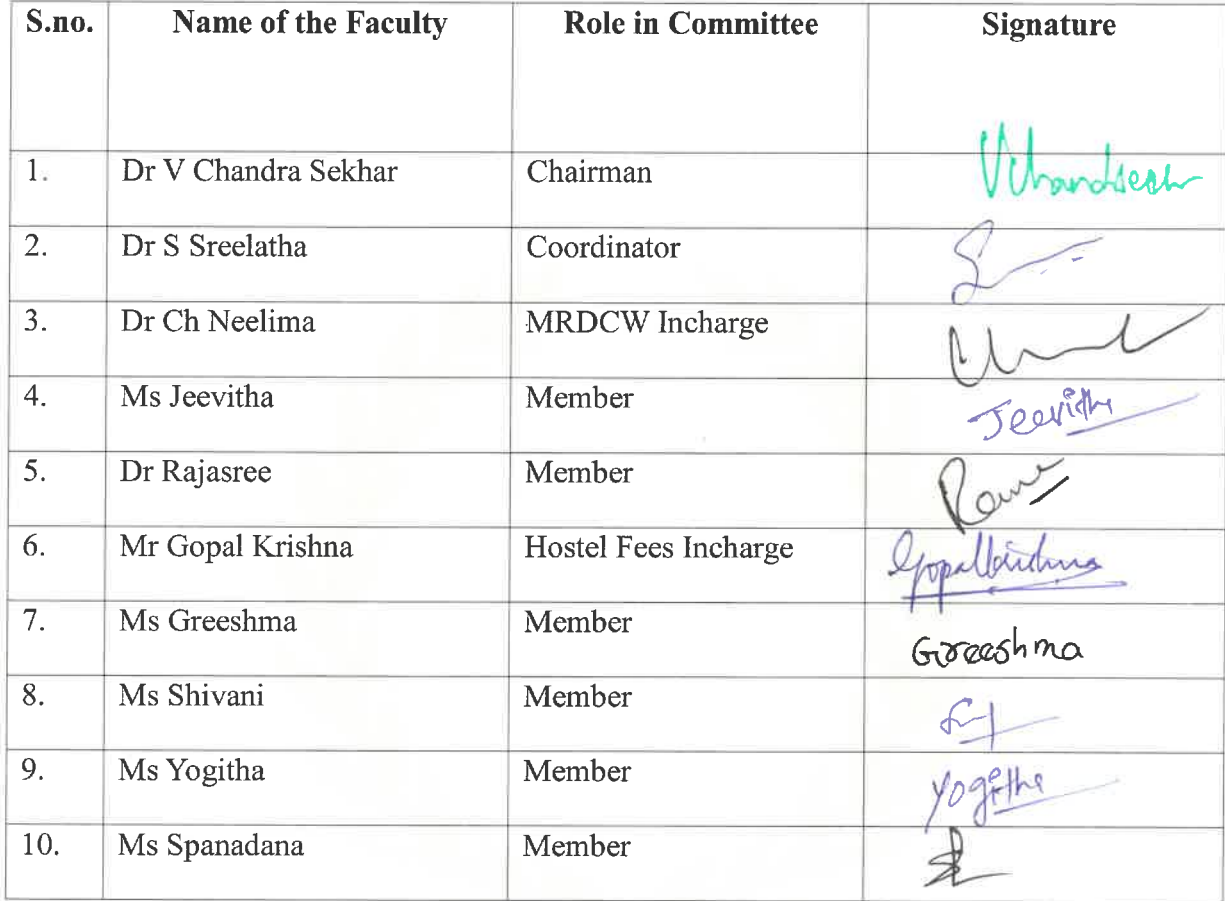 S.no. Name of the Faculty Role in Committee Signature
1. Dr V Chandra Sekhar Chairman
2. Dr S Sreelatha Coordinator
3. Dr Ch Neelima MRDCW Incharge
4. Ms Jeevitha Member Jeevitha
5. Dr Rajasree Member
6. Mr Gopal Krishna Hostel Fees Incharge Gopalkrishna
7. Ms Greeshma Member Greeshma
8. Ms Shivani Member
9. Ms Yogitha Member Yogitha
10. Ms Spanadana Member